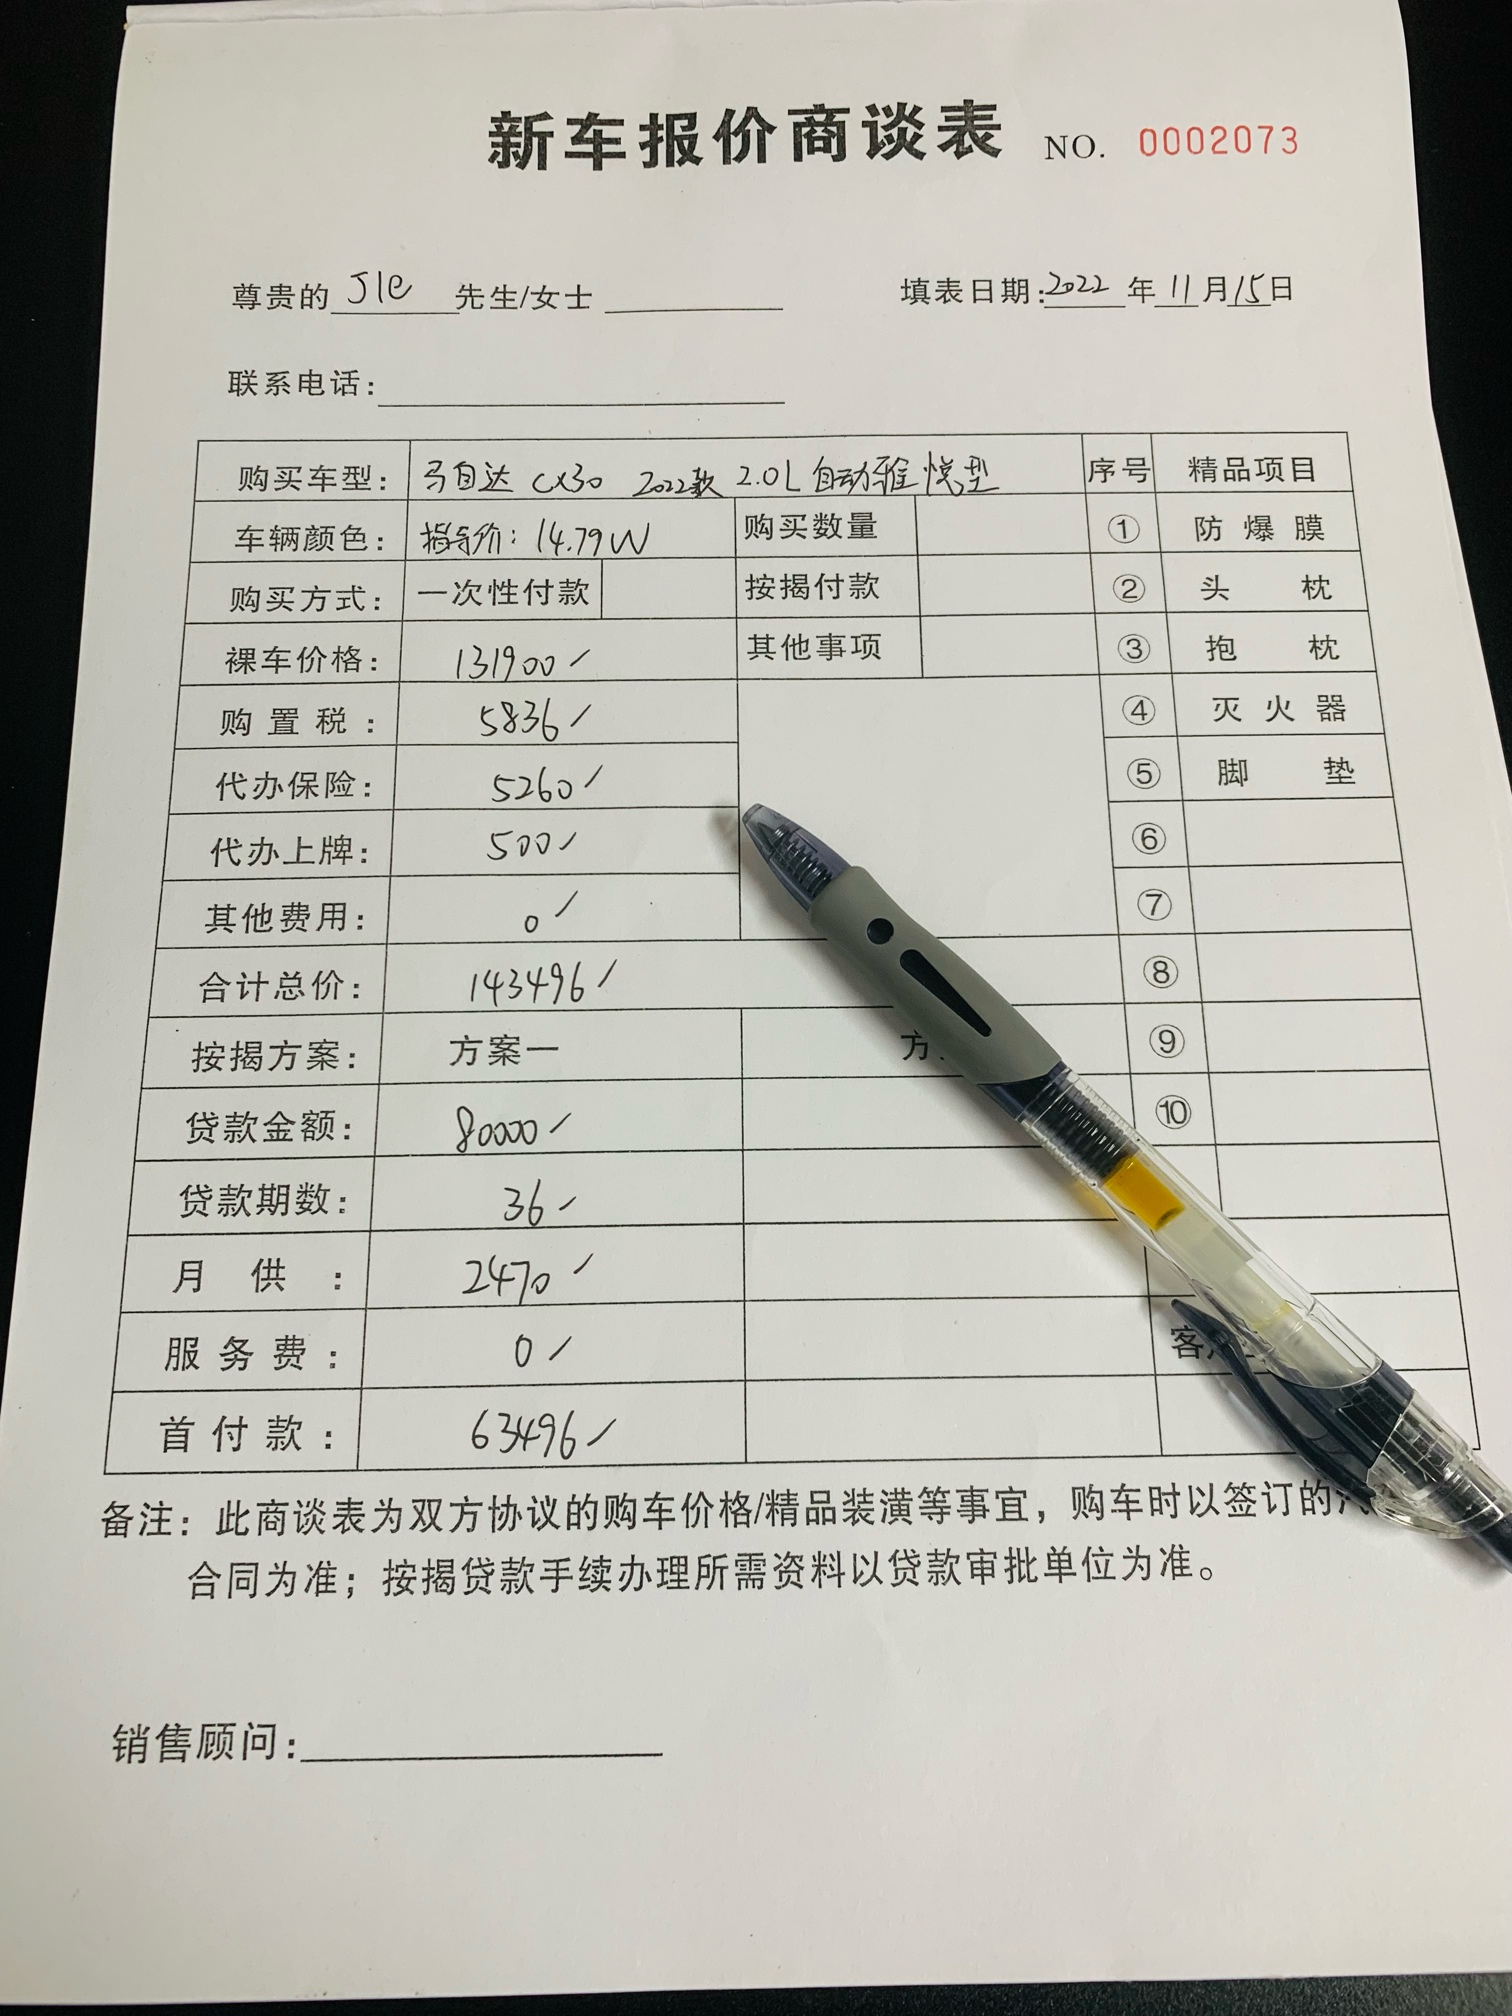 新车报价商谈表 NO. 0002073
尊贵的 Jle 先生/女士 填表日期：2022 年 11 月 15 日
联系电话：
购买车型： 马自达 CX30 2022款 2.0L 自动雅悦型 序号 精品项目
车辆颜色： 指导价：14.79W 购买数量 ① 防爆膜
购买方式： 一次性付款 按揭付款 ② 头枕
裸车价格： 131900 其他事项 ③ 抱枕
购置税： 5836 ④ 灭火器
代办保险： 5260 ⑤ 脚垫
代办上牌： 500 ⑥
其他费用： 0 ⑦
合计总价： 143496 ⑧
按揭方案： 方案一 方 ⑨
贷款金额： 80000 ⑩
贷款期数： 36
月供： 2470
服务费： 0 客
首付款： 63496
备注：此商谈表为双方协议的购车价格/精品装潢等事宜，购车时以签订的
合同为准；按揭贷款手续办理所需资料以贷款审批单位为准。
销售顾问：